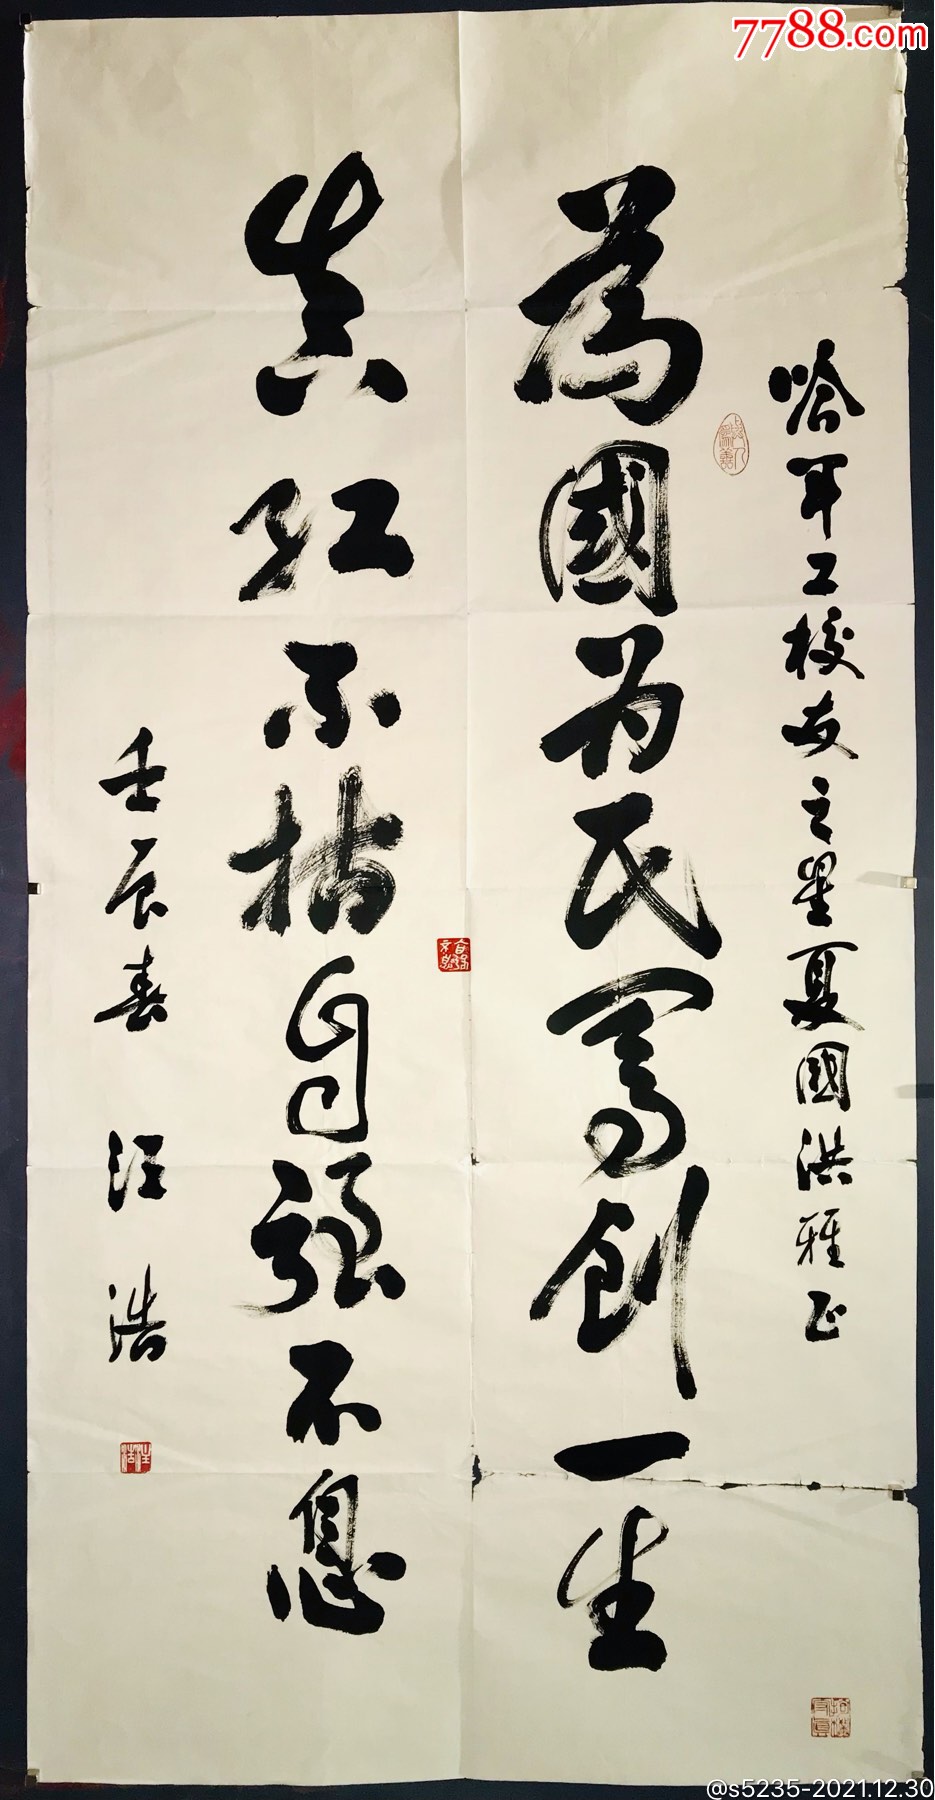 7788.com
哈军工校友之星夏國洪雅正
為國为民创一生
真红不自强不息
壬辰春 汪浩
汪浩
@s5235-2021.12.30